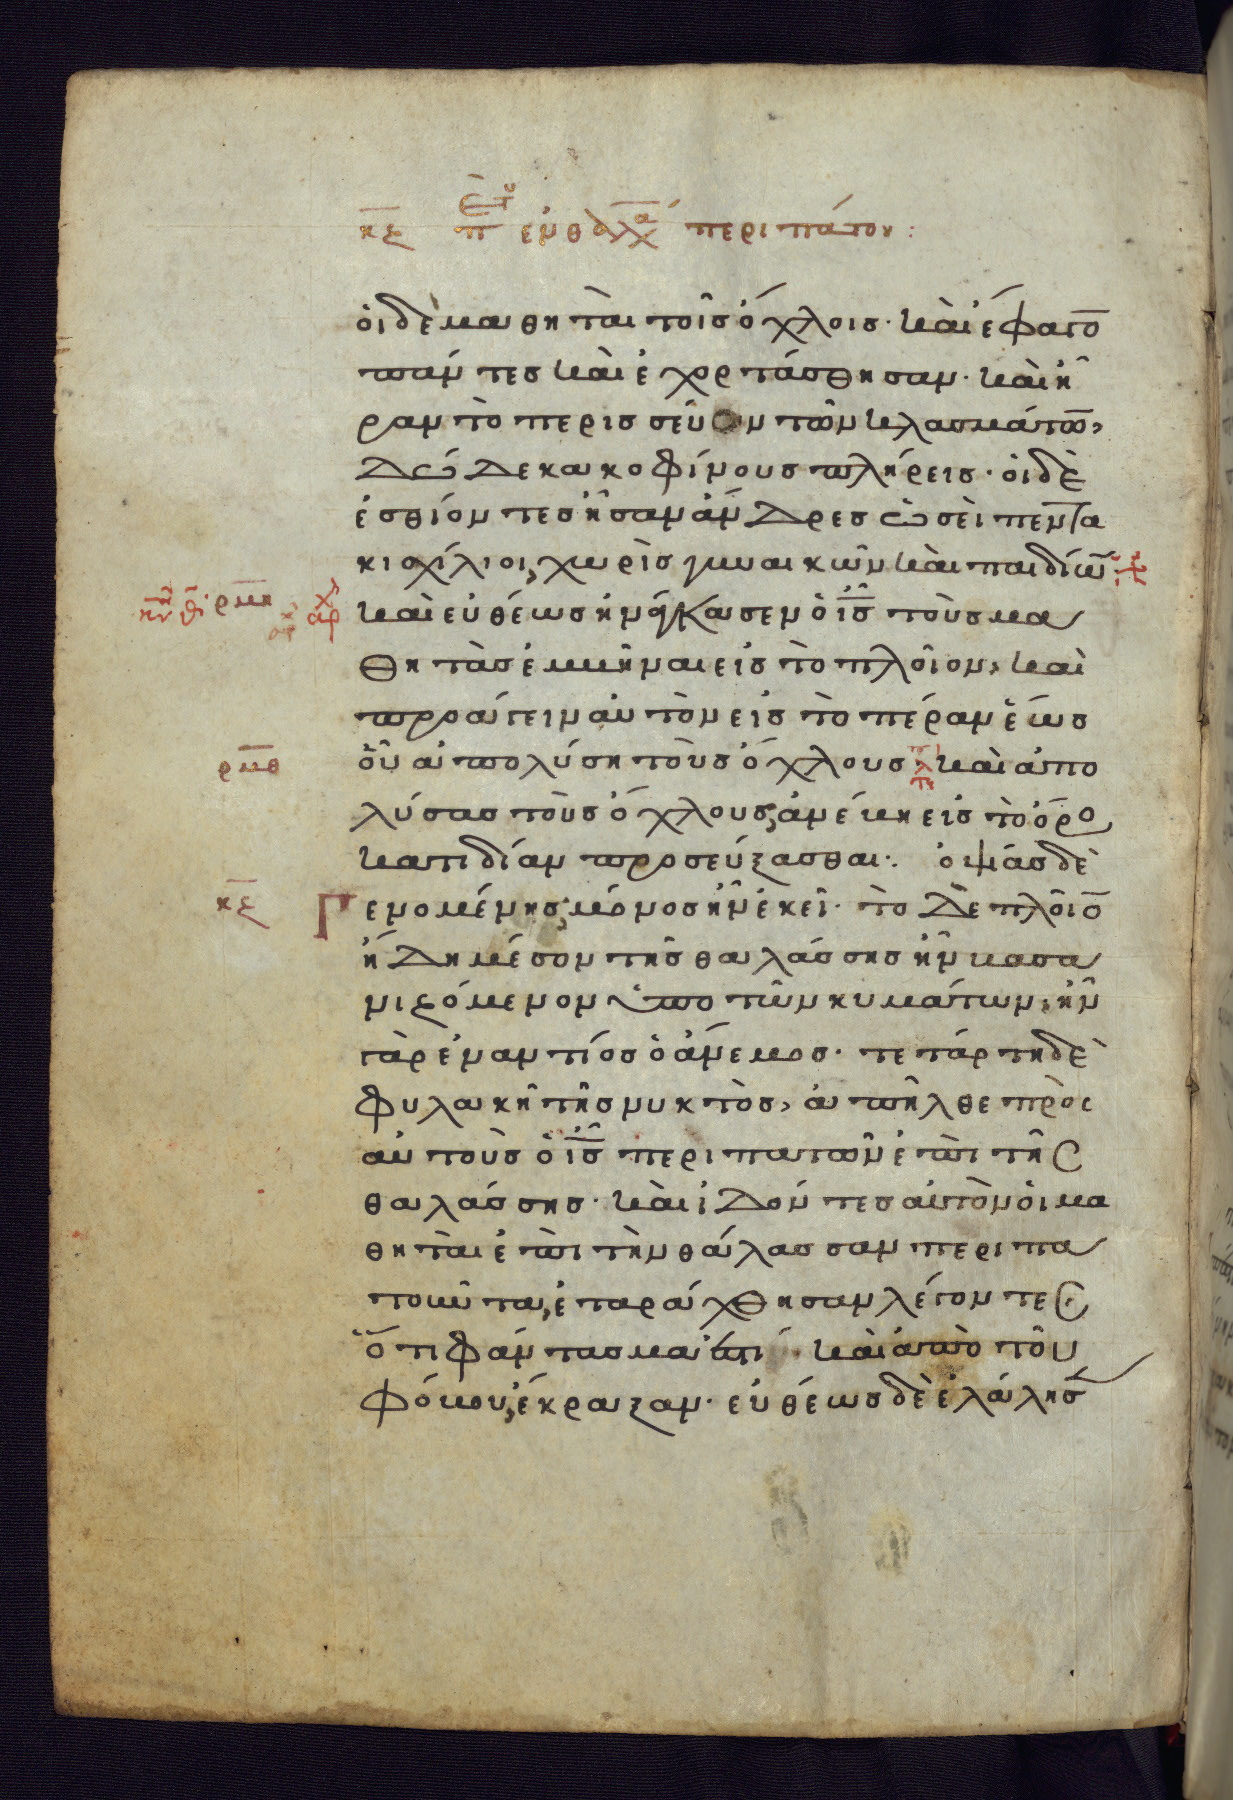 κϛ π ἐν θαλ περιπάτου:
οἱ δὲ μαθηταὶ τοῖς ὄχλοις· καὶ ἔφαγο̅
πάντες καὶ ἐχορτάσθησαν· καὶ ἦ
ραν τὸ περισσεῦον τῶν κλασμάτω̅,
δώδεκα κοφίνους πλήρεις· οἱ δὲ
ἐσθίοντες ἦσαν ἄνδρες ὡσεὶ πεντα
κισχίλιοι, χωρὶς γυναικῶν καὶ παιδίω̅
ρμη αρχ καὶ εὐθέως ἠνάγκασεν ὁ ι̅ς̅ τοὺς μα
θητὰς ἐμβῆναι εἰς τὸ πλοῖον, καὶ
προάγειν αὐτὸν εἰς τὸ πέραν ἕως
ρμθ οὗ ἀπολύση τοὺς ὄχλους καὶ ἀπο
λύσας τοὺς ὄχλους, ἀνέβη εἰς τὸ ὄρο
κατιδίαν προσεύξασθαι· ὀψίας δὲ
κϛ Γενομένης, μόνος ἦν ἐκεῖ· τὸ δὲ πλοῖο̅
ἤδη μέσον τῆς θαλάσσης ἦν βασα
νιζόμενον ὑπὸ τῶν κυμάτων, ἦν
γὰρ ἐναντίος ὁ ἄνεμος· τετάρτη δὲ
φυλακῆ τῆς νυκτὸς, ἀπῆλθε πρὸς
αὐτοὺς ὁ ι̅ς̅ περιπατῶν ἐπὶ τῆς
θαλάσσης· καὶ ἰδόντες αὐτὸν οἱ μα
θηταὶ ἐπὶ τὴν θάλασσαν περιπα
τοῦντα, ἐταράχθησαν λέγοντες
ὅτι φάντασμά ἐστι· καὶ ἀπὸ τοῦ
φόβου, ἔκραξαν· εὐθέως δὲ ἐλάλησ